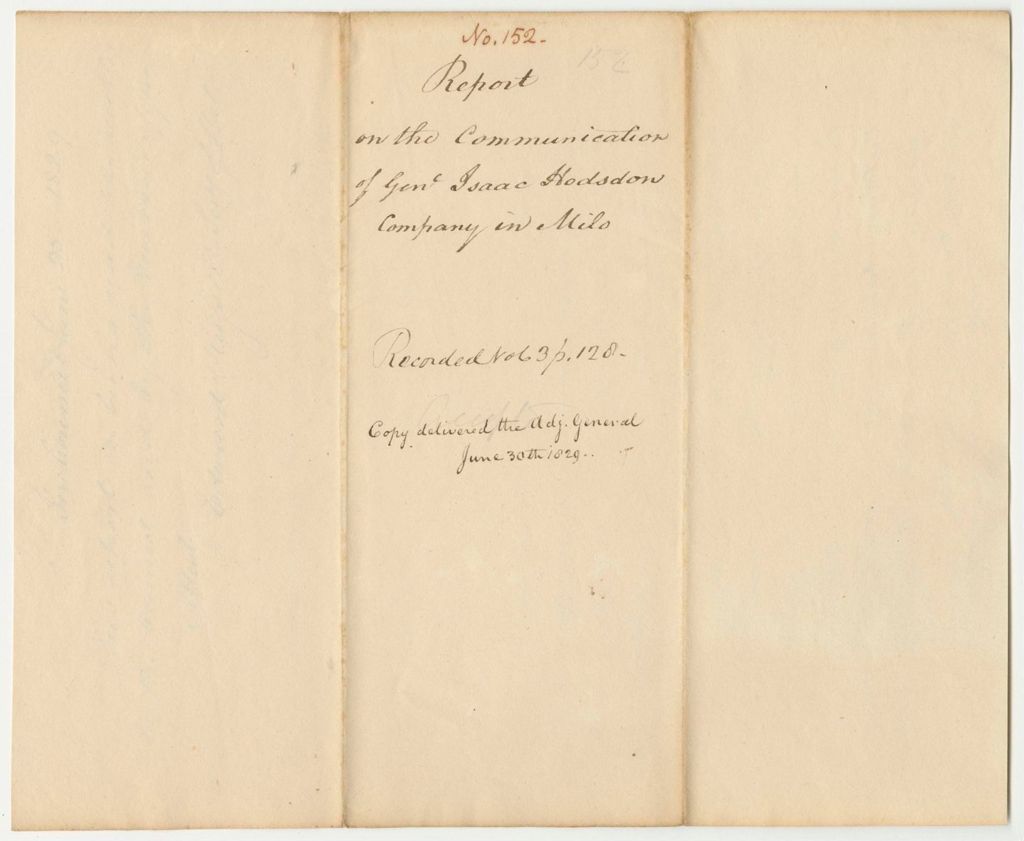 No. 152.
152
Report
on the Communication
of Genl Isaac Hodsdon
Company in Milo
Recorded Vol 3 p. 128.
Copy delivered the Adj. General
June 30th 1829.